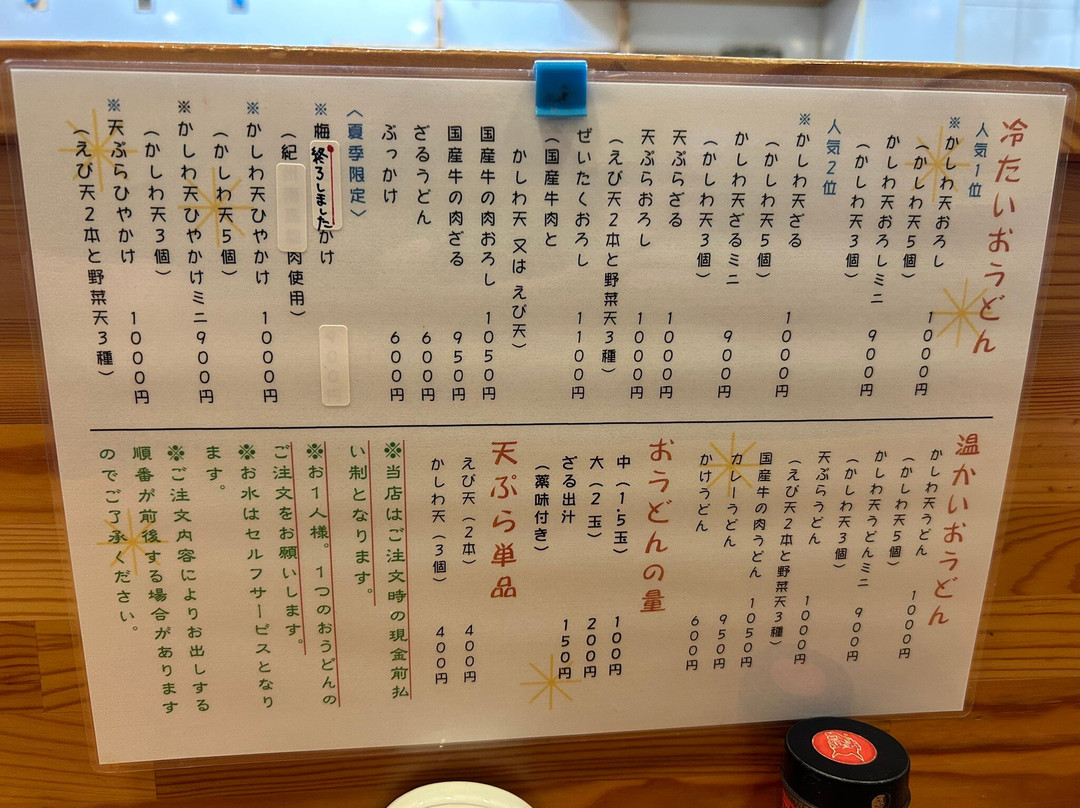 冷たいおうどん
人気1位
※かしわ天おろし 1000円
(かしわ天5個)
かしわ天おろしミニ 900円
(かしわ天3個)
人気2位
※かしわ天ざる 1000円
(かしわ天5個)
かしわ天ざるミニ 900円
(かしわ天3個)
天ぷらざる 1000円
天ぷらおろし 1000円
(えび天2本と野菜天3種)
ぜいたくおろし 1100円
(国産牛肉と
かしわ天 又は えび天)
国産牛の肉おろし 1050円
国産牛の肉ざる 950円
ざるうどん 600円
ぶっかけ 600円
〈夏季限定〉
※梅 終了しました かけ
(紀 肉使用)
※かしわ天ひやかけ 1000円
(かしわ天5個)
※かしわ天ひやかけミニ 900円
(かしわ天3個)
※天ぷらひやかけ 1000円
(えび天2本と野菜天3種)
温かいおうどん
かしわ天うどん 1000円
(かしわ天5個)
かしわ天うどんミニ 900円
(かしわ天3個)
天ぷらうどん 1000円
(えび天2本と野菜天3種)
国産牛の肉うどん 1050円
カレーうどん 950円
かけうどん 600円
おうどんの量
中(1.5玉) 100円
大(2玉) 200円
ざる出汁 150円
(薬味付き)
天ぷら単品
えび天(2本) 400円
かしわ天(3個) 400円
※当店はご注文時の現金前払
い制となります。
※お1人様。1つのおうどんの
ご注文をお願いします。
※お水はセルフサービスとなり
ます。
※ご注文内容によりお出しする
順番が前後する場合があります
のでご了承ください。